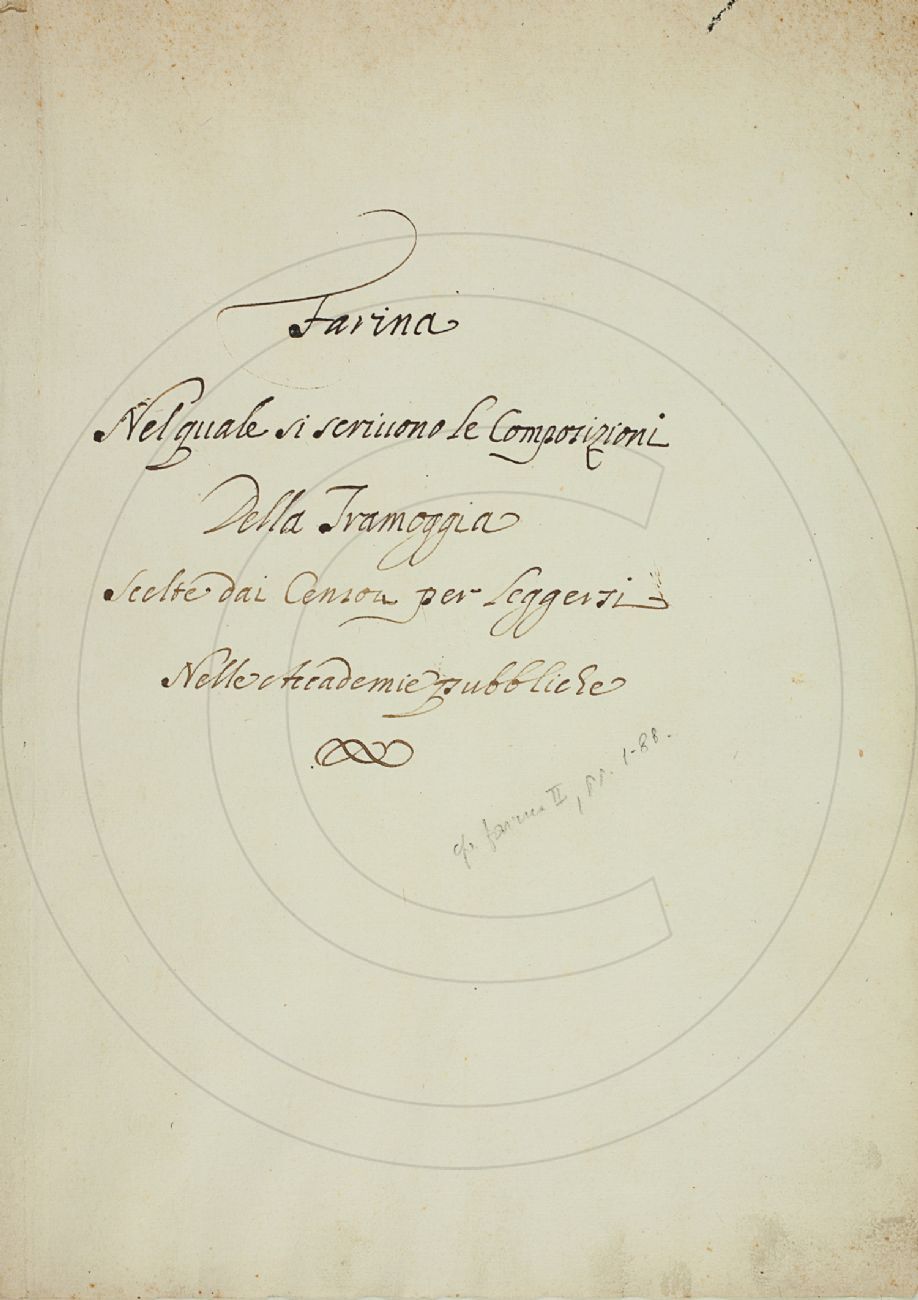 Farina
Nel quale si scriuono le Composizioni
Della Tramoggia
Scelte dai Censori per Leggersi
Nelle Accademie pubbliche
cfr. farina II, pp. 1-88.